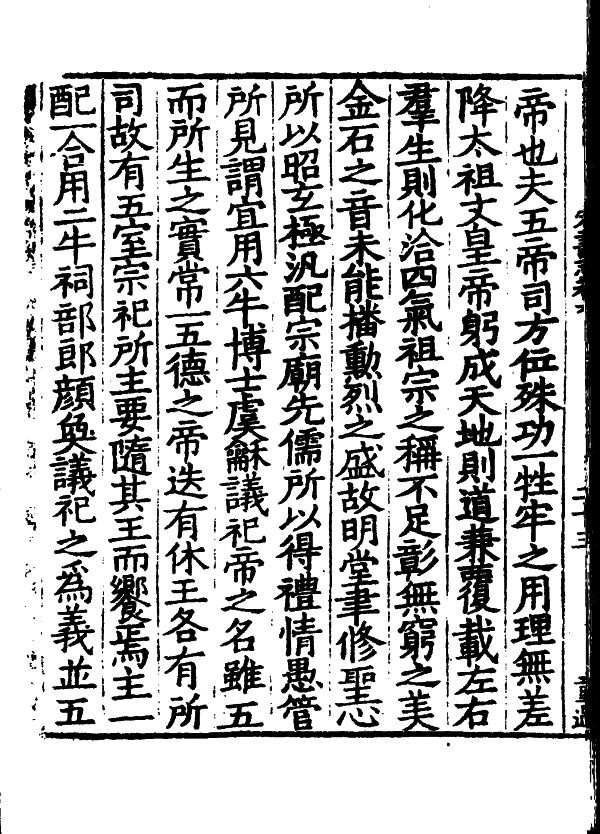 帝也夫五帝司方位殊功一牲牢之用理無差
降太祖文皇帝躬成天地則道兼覆載左右
羣生則化洽四氣祖宗之稱不足彰無窮之美
金石之音未能播勳烈之盛故明堂聿修聖心
所以昭玄極汎配宗廟先儒所以得禮情愚管
所見謂宜用六牛博士虞龢議祀帝之名雖五
而所生之實常一五德之帝迭有休王各有所
司故有五室宗祀所主要隨其王而饗焉主一
配一合用二牛祠部郎顏奐議祀之爲義並五